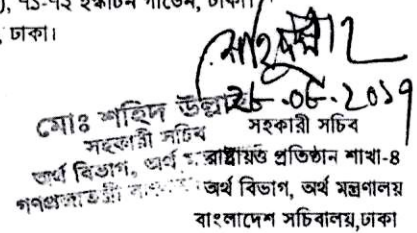 ), ৭১-৭২ ইস্কাটন গার্ডেন, ঢাকা।
, ঢাকা।
মোঃ শহিদ উল্লাহ
সহকারী সচিব
অর্থ বিভাগ, অর্থ
সহকারী সচিব
রাষ্ট্রায়ত্ত প্রতিষ্ঠান শাখা-৪
অর্থ বিভাগ, অর্থ মন্ত্রণালয়
বাংলাদেশ সচিবালয়,ঢাকা